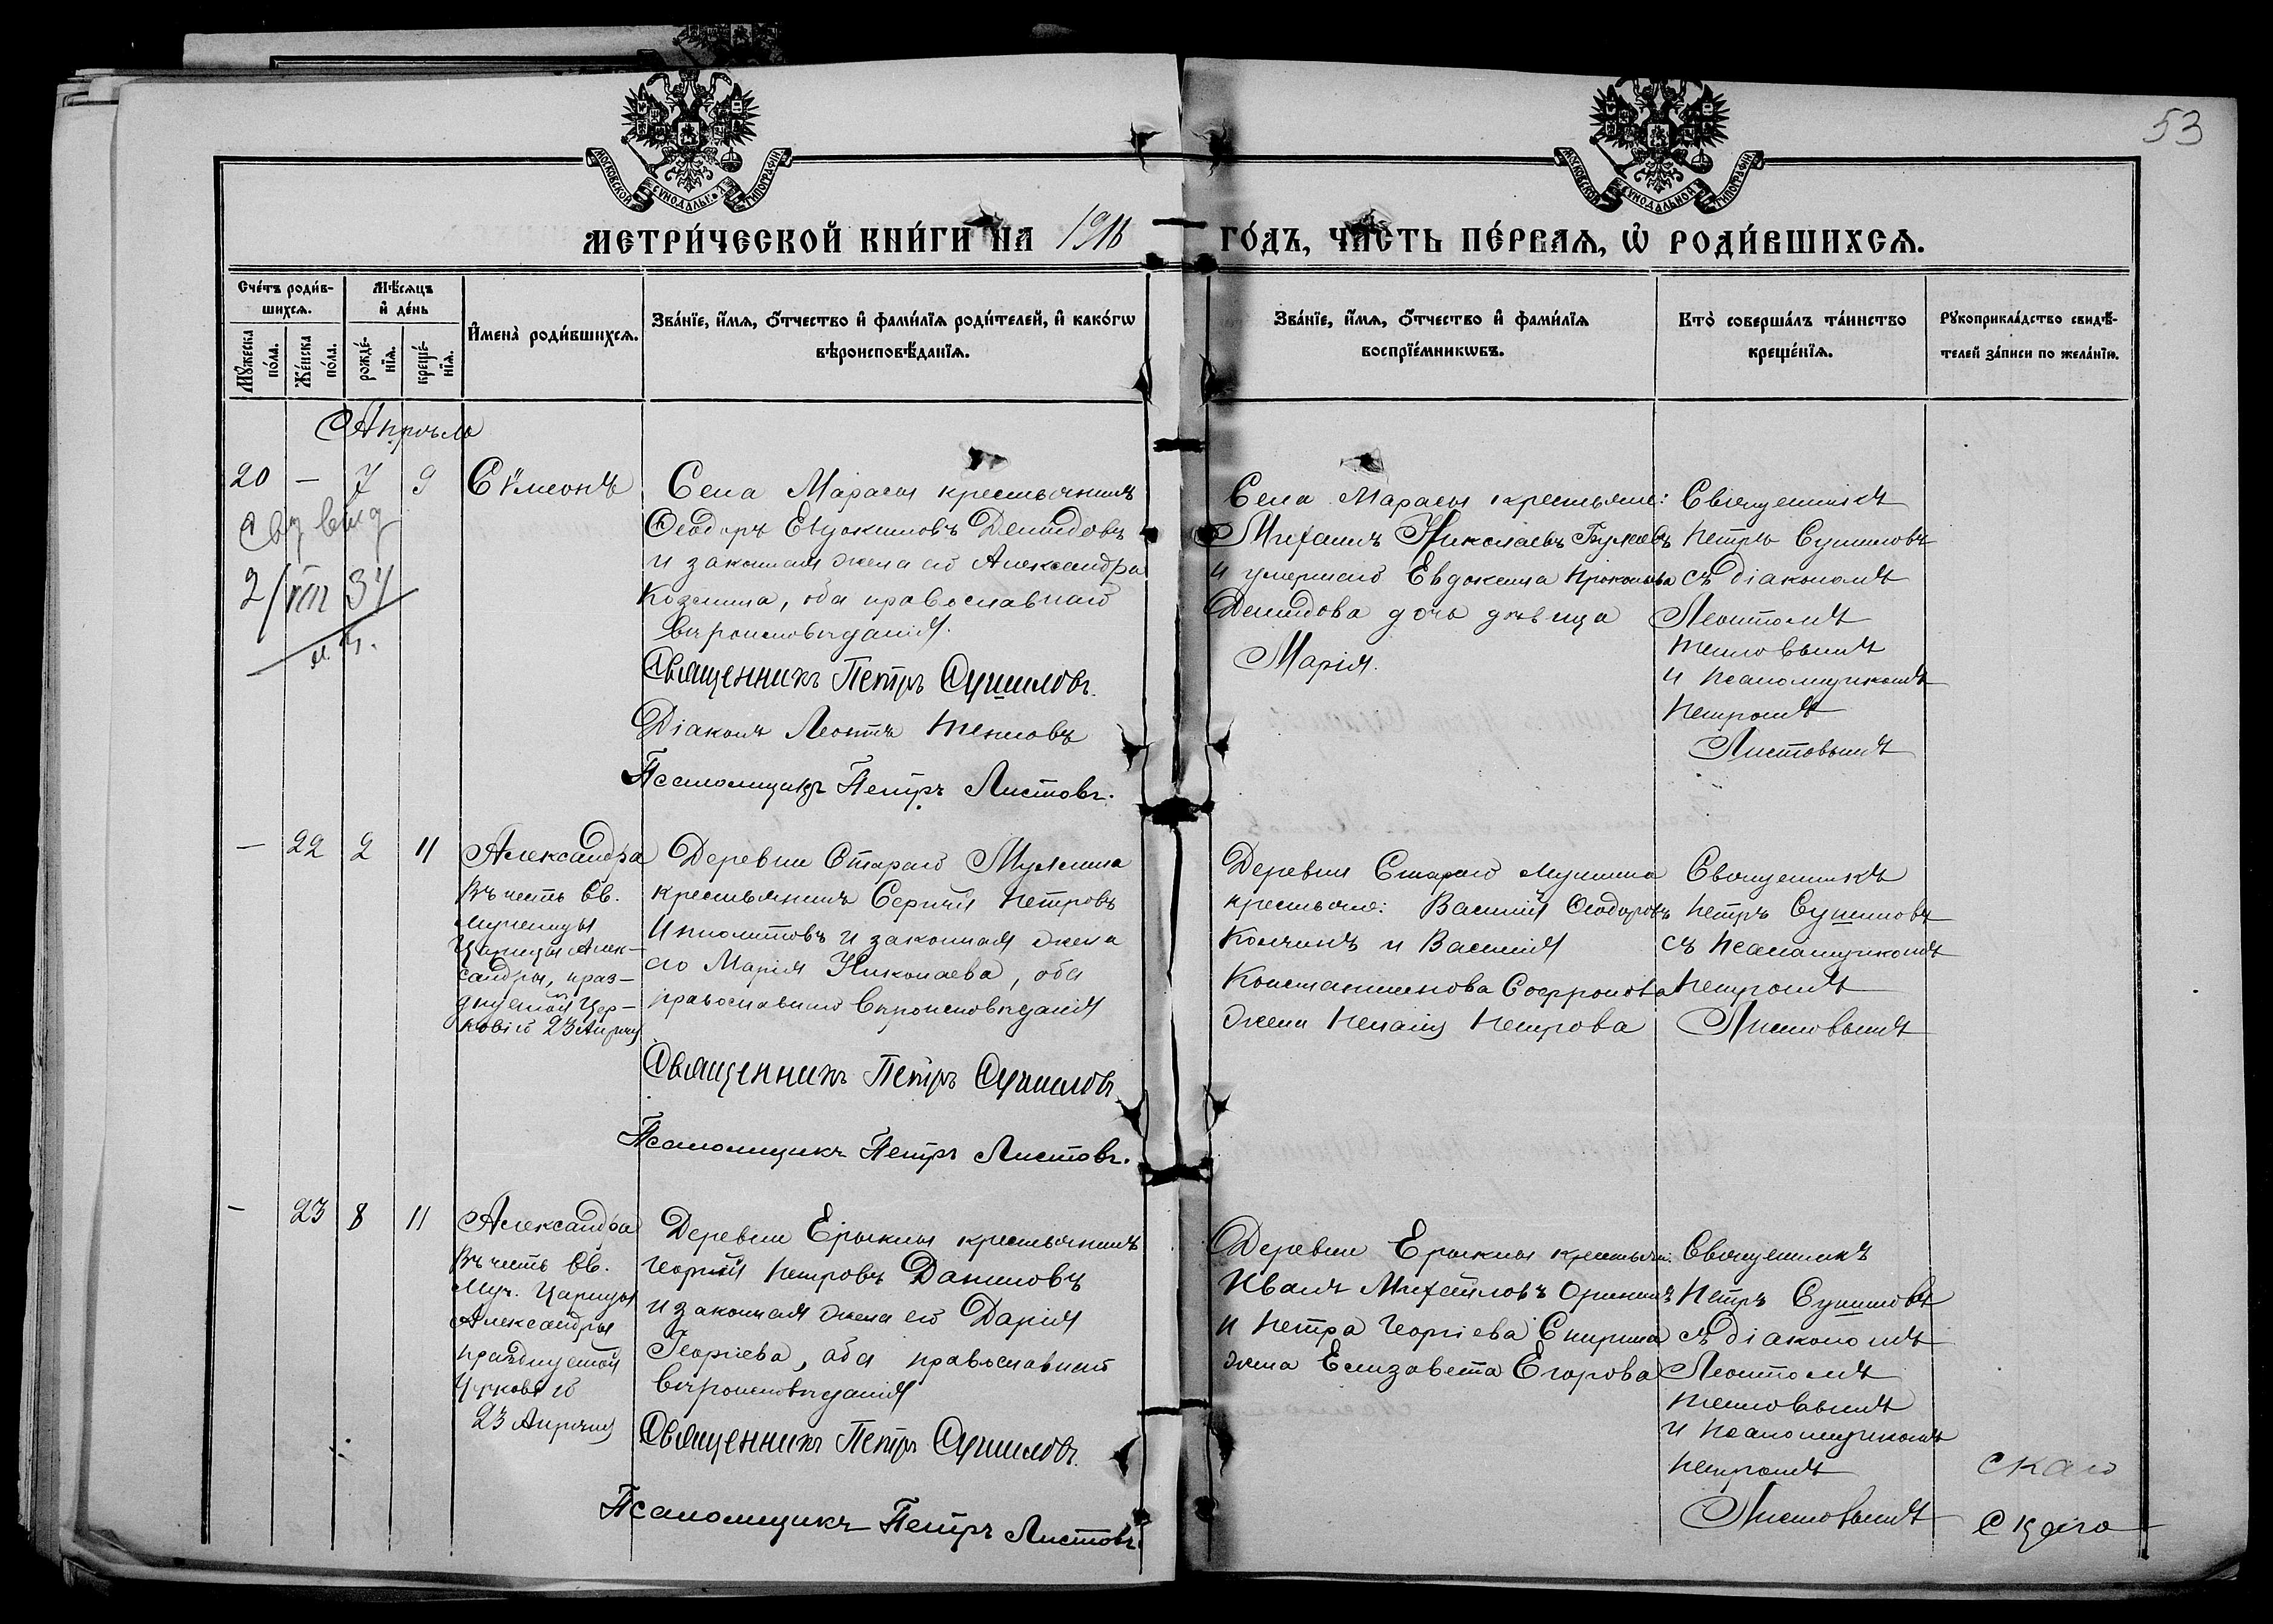 53
МОСКОВСКОЙ СѴНОДАЛЬНОЙ ТИПОГРАФІИ
МОСКОВСКОЙ СѴНОДАЛЬНОЙ ТИПОГРАФІИ
МЕТРИ́ЧЕСКОЙ КНИ́ГИ НА 1916 ГО́ДЪ, ЧА́СТЬ ПЕ́РВАЯ, Ѡ҆ РОДИ́ВШИХСЯ.
Сче́тъ роди́в-
шихся.
Мꙋ́жеска по́ла.
Же́нска по́ла.
Мѣ́сяцъ
и҆ де́нь
рожде́-
нїя.
креще́-
нїя.
И҆мена̀ роди́вшихся.
Зва́нїе, и҆́мя, ѻ҆́тчество и҆ фами́лїя роди́телей, и҆ како́гѡ
вѣроисповѣ́данїя.
Зва́нїе, и҆́мя, ѻ҆́тчество и҆ фами́лїя
воспрїе́мникѡвъ.
Кто̀ соверша́лъ та́инство
креще́нїя.
Рꙋкоприкла́дство свидѣ́-
телей за́писи по жела́нїю.
Апрѣль
20 — 7 9
Сѵмеонъ
2/VIII 37
Села Марасы крестьянинъ
Ѳеодоръ Евдокимовъ Демидовъ
и законная жена его Александра
Козмина, оба православнаго
вѣроисповѣданія.
Священникъ Петръ Сушиловъ.
Діаконъ Леонтъ Тепловъ
Псаломщикъ Петръ Листовъ.
Села Марасы крестьяне:
Михаилъ Николаевъ
и умершаго Евдокима Прокопьева
Демидова дочь дѣвица
Марія.
Священникъ
Петръ Сушиловъ
съ діакономъ
Леонтомъ
Тепловымъ
и псаломщикомъ
Петромъ
Листовымъ
— 22 2 11
Александра
въ честь Св.
мученицы
Царицы Алек-
сандры, праз-
днуемой Цер-
ковію 23 Апрѣля
Деревни Стараго Мулина
крестьянинъ Сергѣй Петровъ
Ипполитовъ и законная жена
его Марія Николаева, оба
православнаго вѣроисповѣданія
Священникъ Петръ Сушиловъ
Псаломщикъ Петръ Листовъ.
Деревни Стараго Мулина
крестьяне: Василій Ѳеодоровъ
и Василія
Константинова Софронова
жена Петрова
Священникъ
Петръ Сушиловъ
съ псаломщикомъ
Петромъ
Листовымъ
- 23 8 11
Александра
въ честь Св.
Муч. Царицы
Александры
празднуемой
Церковію
23 Апрѣля
Деревни Ерыклы крестьянинъ
Георгій Петровъ Даниловъ
и законная жена его Дарія
Георгіева, оба православнаго
вѣроисповѣданія
Священникъ Петръ Сушиловъ.
Псаломщикъ Петръ Листовъ.
Деревни Ерыклы крестьян.
Иванъ Михайловъ
и Петра Георгіева Спирина
жена Елизавета Егорова
Священникъ
Петръ Сушиловъ
съ діакономъ
Леонтомъ
Тепловымъ
и псаломщикомъ
Петромъ
Листовымъ
скаго